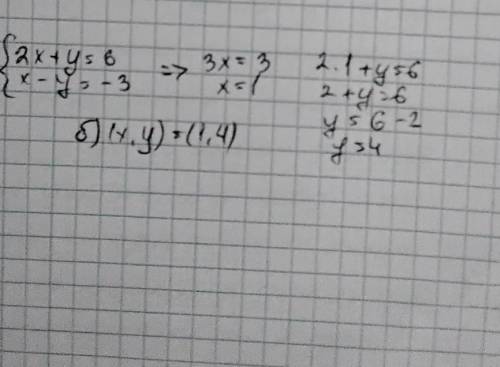 {2x+y=6
x-y=-3
=> 3x=3
x=1
2·1+y=6
2+y=6
y=6-2
y=4
б) (x,y)=(1,4)